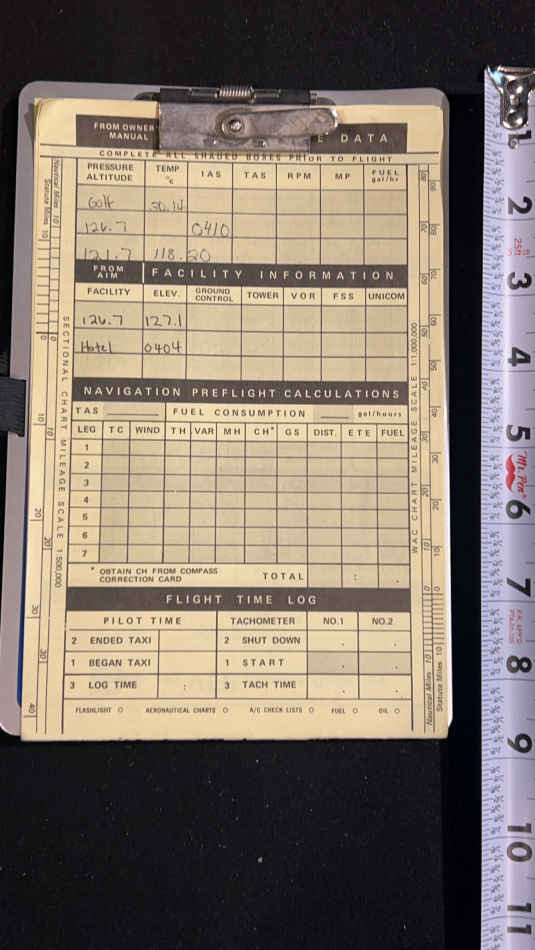 FROM OWNER MANUAL
E DATA
COMPLETE ALL SHADED BOXES PRIOR TO FLIGHT
PRESSURE ALTITUDE TEMP °C IAS TAS RPM MP FUEL gal/hr
Golf 30.14
126.7 0410
121.7 118.20
FROM AIM FACILITY INFORMATION
FACILITY ELEV. GROUND CONTROL TOWER VOR FSS UNICOM
126.7 127.1
Hotel 0404
NAVIGATION PREFLIGHT CALCULATIONS
TAS FUEL CONSUMPTION gal/hours
LEG TC WIND TH VAR MH CH* GS DIST. ETE FUEL
1
2
3
4
5
6
7
* OBTAIN CH FROM COMPASS CORRECTION CARD TOTAL : .
FLIGHT TIME LOG
PILOT TIME TACHOMETER NO.1 NO.2
2 ENDED TAXI 2 SHUT DOWN . .
1 BEGAN TAXI 1 START . .
3 LOG TIME : 3 TACH TIME . .
FLASHLIGHT AERONAUTICAL CHARTS A/C CHECK LISTS FUEL OIL
Statute Miles 10 0 10 20 30 40
Nautical Miles 10 0 10 20 30
SECTIONAL CHART MILEAGE SCALE 1:500,000
WAC CHART MILEAGE SCALE 1:1,000,000
Nautical Miles 10 0 10 20 30 40 50 60 70 80
Statute Miles 10 0 10 20 30 40 50 60 70 80 90
1 2 3 4 5 6 7 8 9 10 11
25ft
"Mr. Pen"